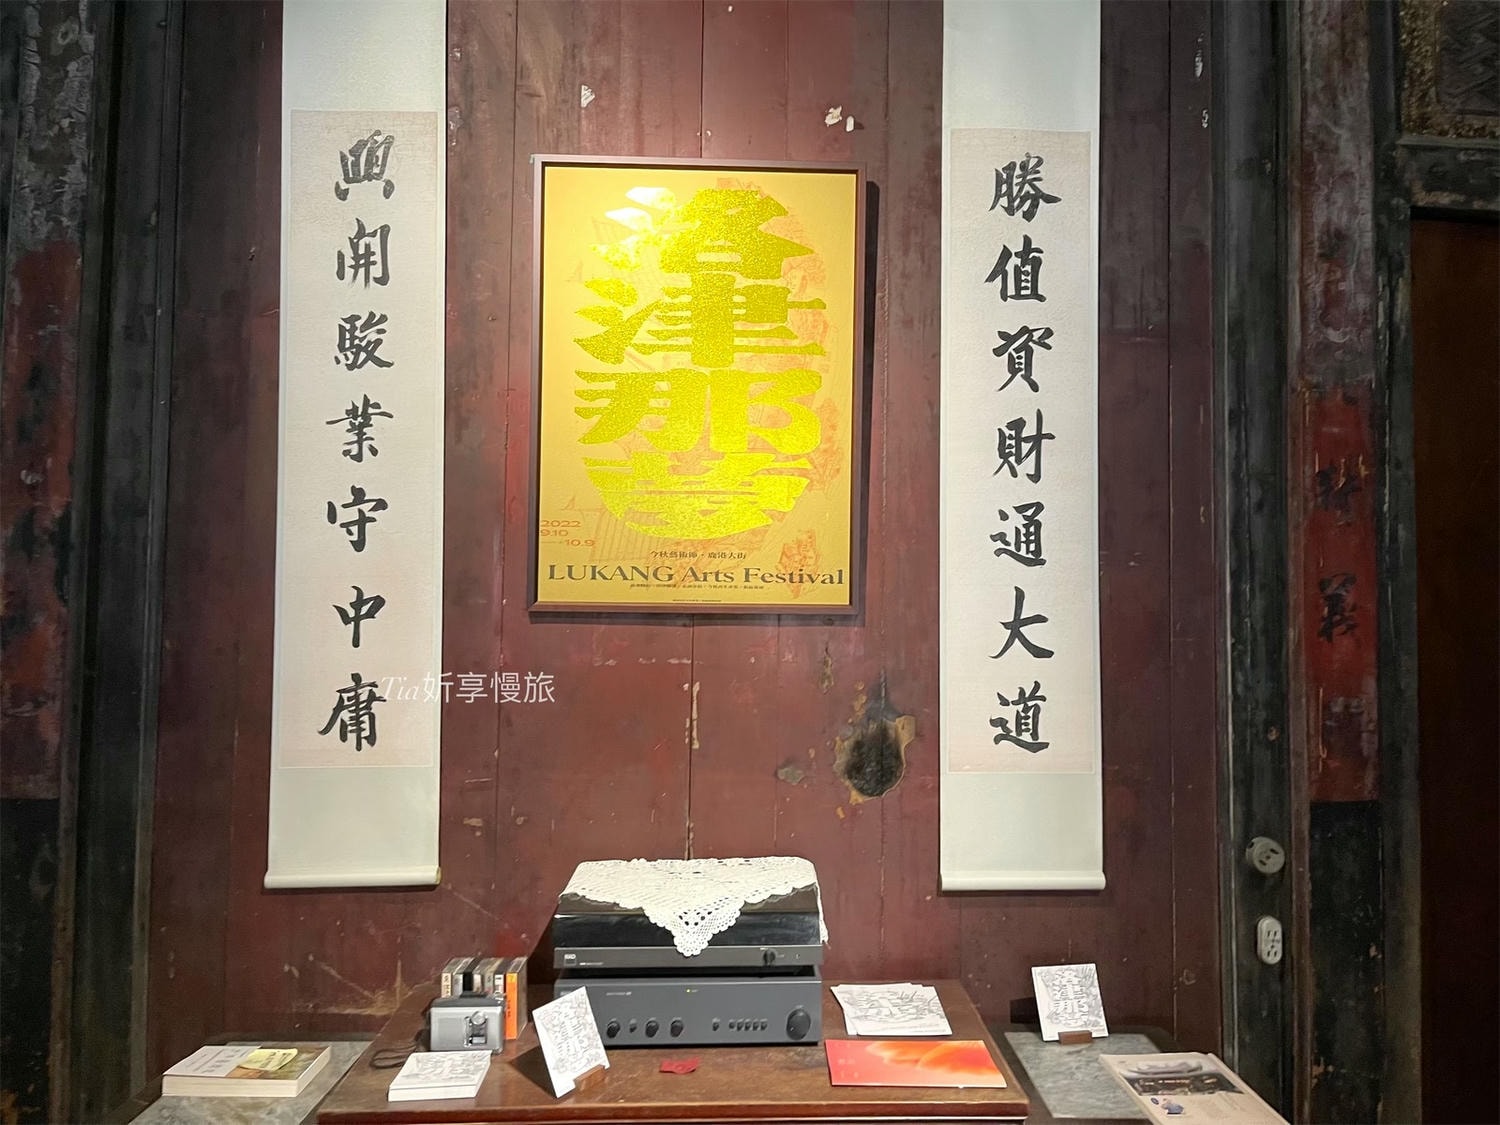 勝值資財通大道
興開駿業守中庸
洛津那夢
2022
9.10
—10.9
今秋藝術節・鹿港大街
LUKANG Arts Festival
Tia妡享慢旅
NAD